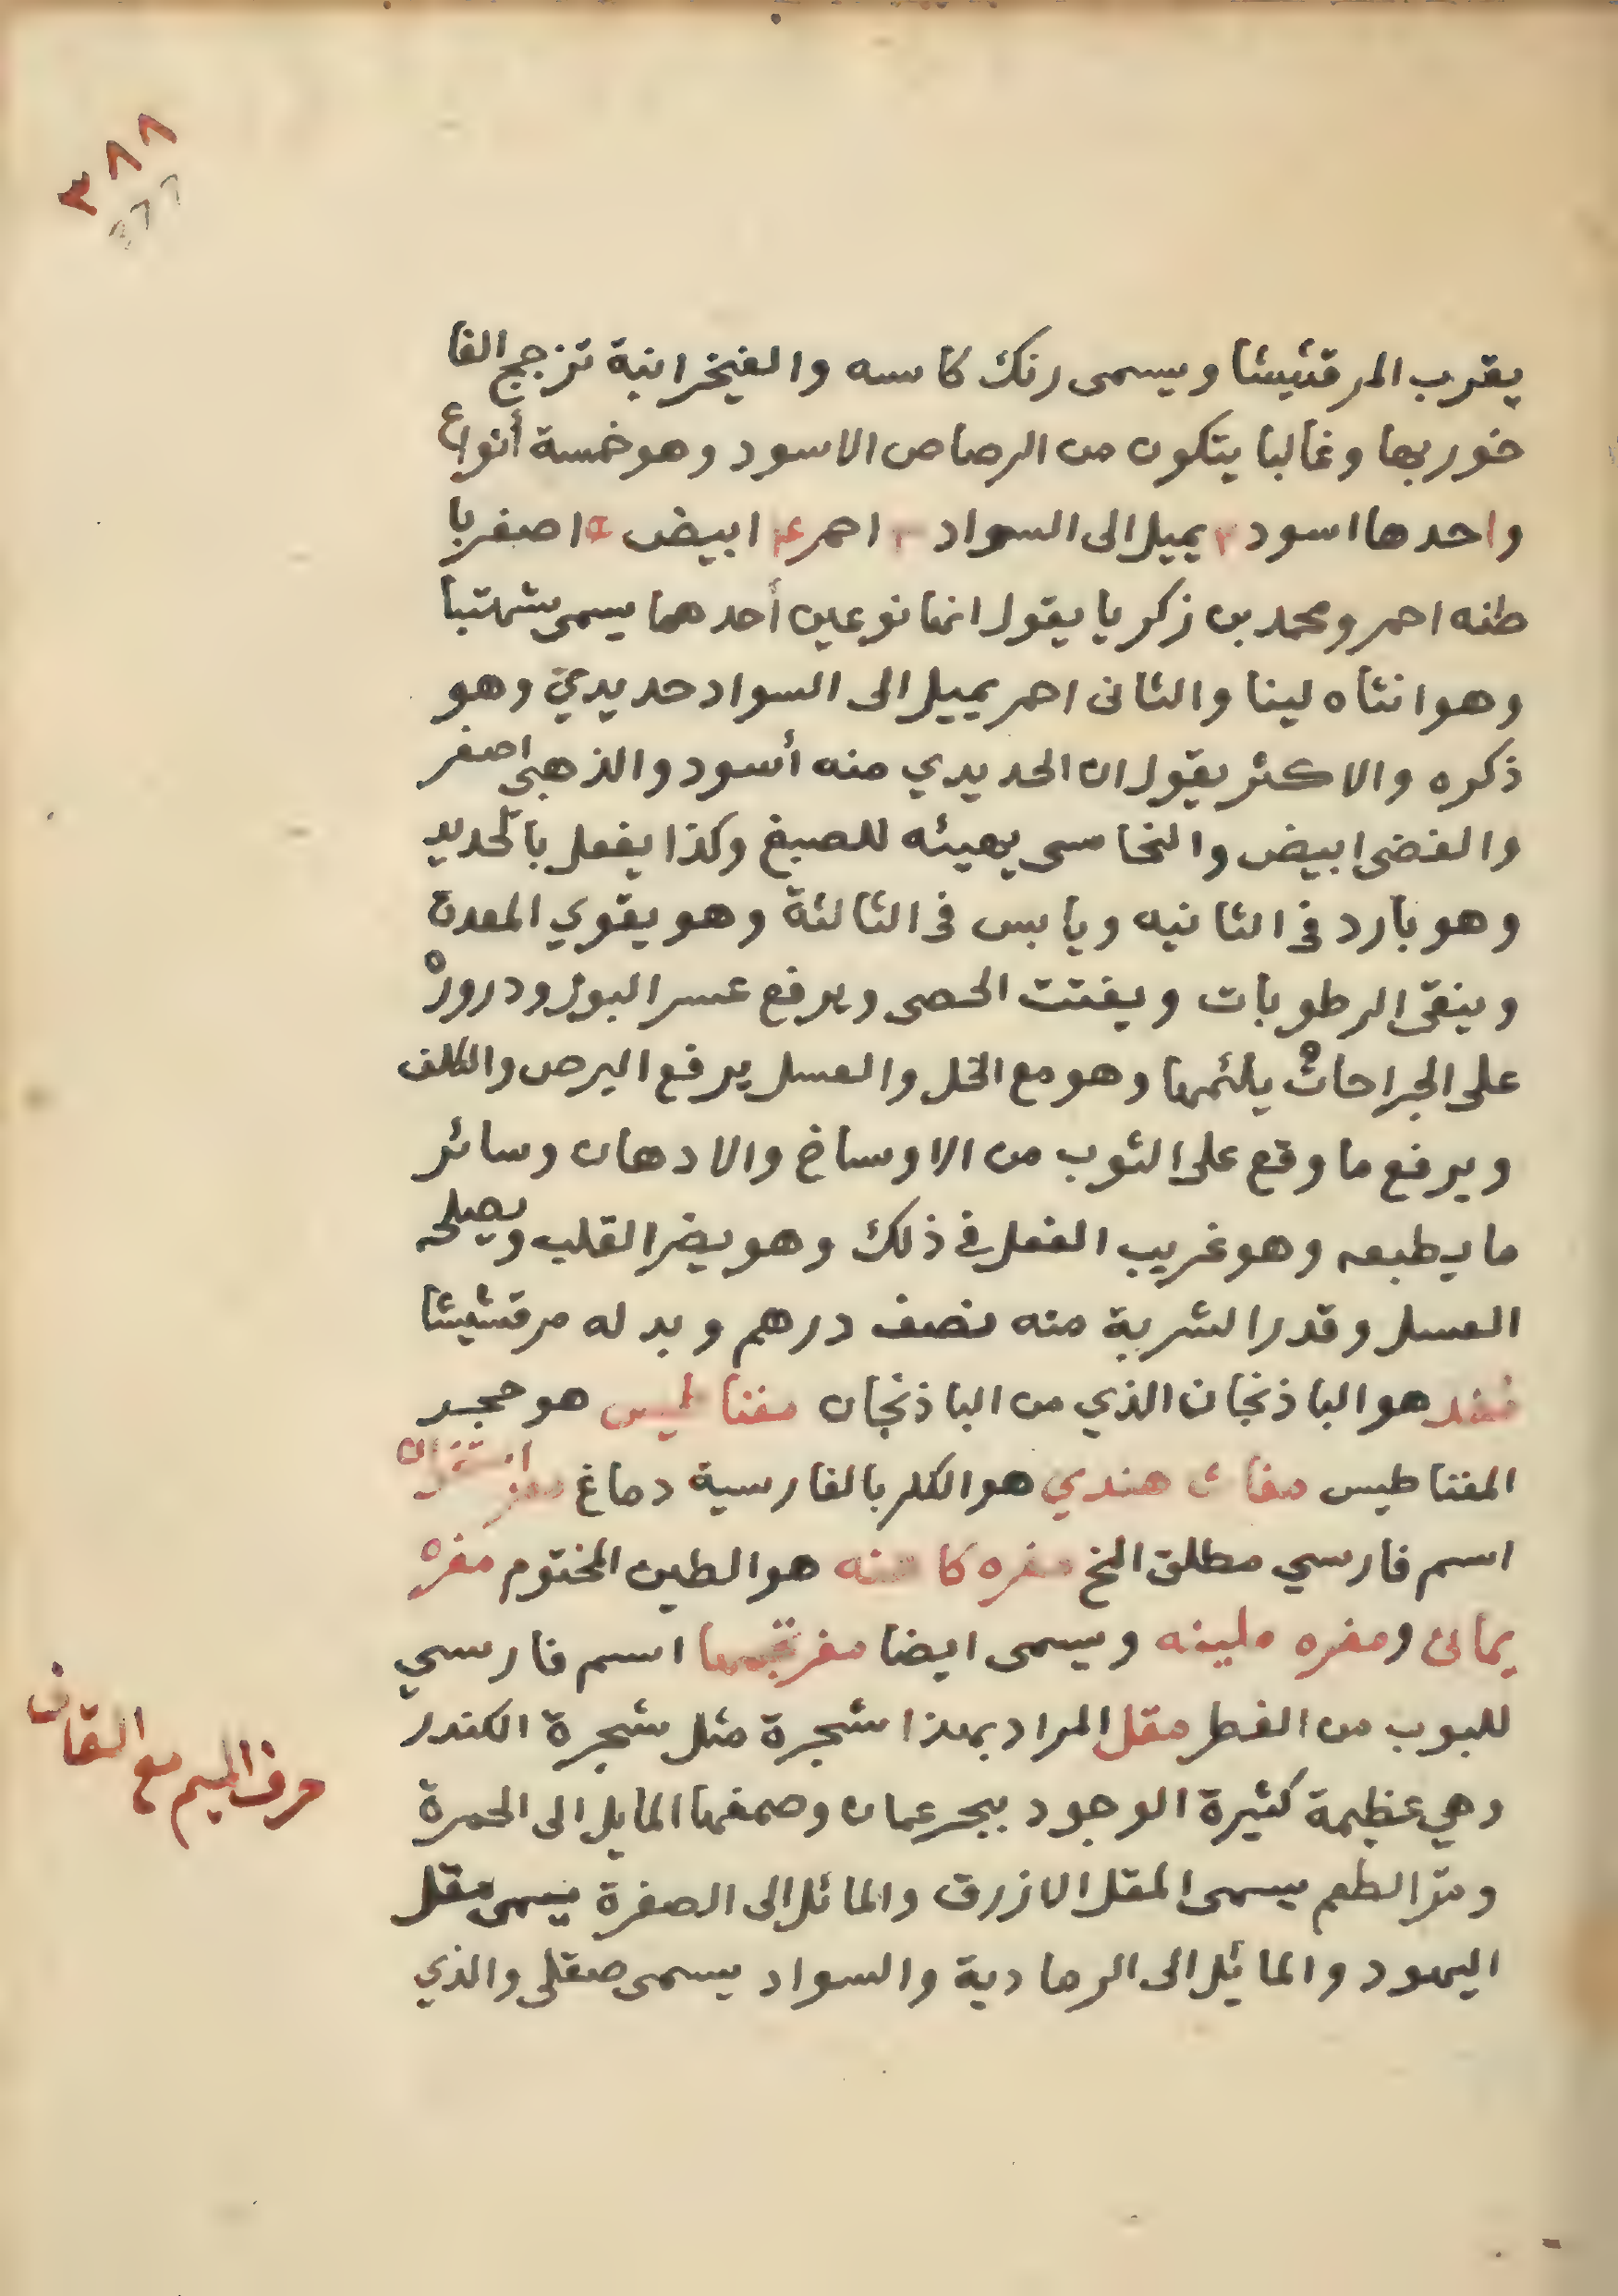 ٣٨٨
٣٧٧
يقرب المرقشيشا ويسمى رنك كاسه والفيخرانية تزجج الفا
خور بها وغالبا يتكون من الرصاص الاسود وهو خمسة أنواع
واحدها اسود ٢ يميل الى السواد ٣ احمر ٤ ابيض ٥ اصفر با
طنه احمر ومحمد بن زكريا يقول انها نوعين أحدهما يسمى
وهو انثاه لينا والثانى احمر يميل الى السواد حديدي وهو
ذكره والاكثر يقول ان الحديدي منه أسود والذهبى اصفر
والفضى ابيض والنحاسى يهيئه للصبغ وكذا يفعل بالحديد
وهو بارد فى الثانيه ويابس فى الثالثة وهو يقوي المعدة
وينقى الرطوبات ويفتت الحصى ويرفع عسر البول ودروره
على الجراحات يلئمها وهو مع الخل والعسل يرفع البرص والكلف
ويرفع ما وقع على الثوب من الاوساخ والادهان وسائر
ما يطبعه وهو غريب الفعل في ذلك وهو يضر القلب ويصلحه
العسل وقدر الشربة منه نصف درهم وبدله مرقشيشا
هو الباذنجان الذي من الباذنجان مغناطيس هو حجر
المغناطيس مغاث هندي هو الكلر بالفارسية دماغ مغز
اسم فارسي مطلق المخ مغره كاهنه هو الطين المختوم مغره
يمانى ومغره ملينه ويسمى ايضا اسم فارسي
للبوب من الفطر مقل المراد بهذا شجرة مثل شجرة الكندر
وهي عظيمة كثيرة الوجود ببحر عمان وصمغها المايل الى الحمرة
ومر الطعم يسمى المقل الازرق والمائل الى الصفرة يسمى مقل
اليهود والمائل الى الرمادية والسواد يسمى صقلى والذي
حرف الميم مع القاف